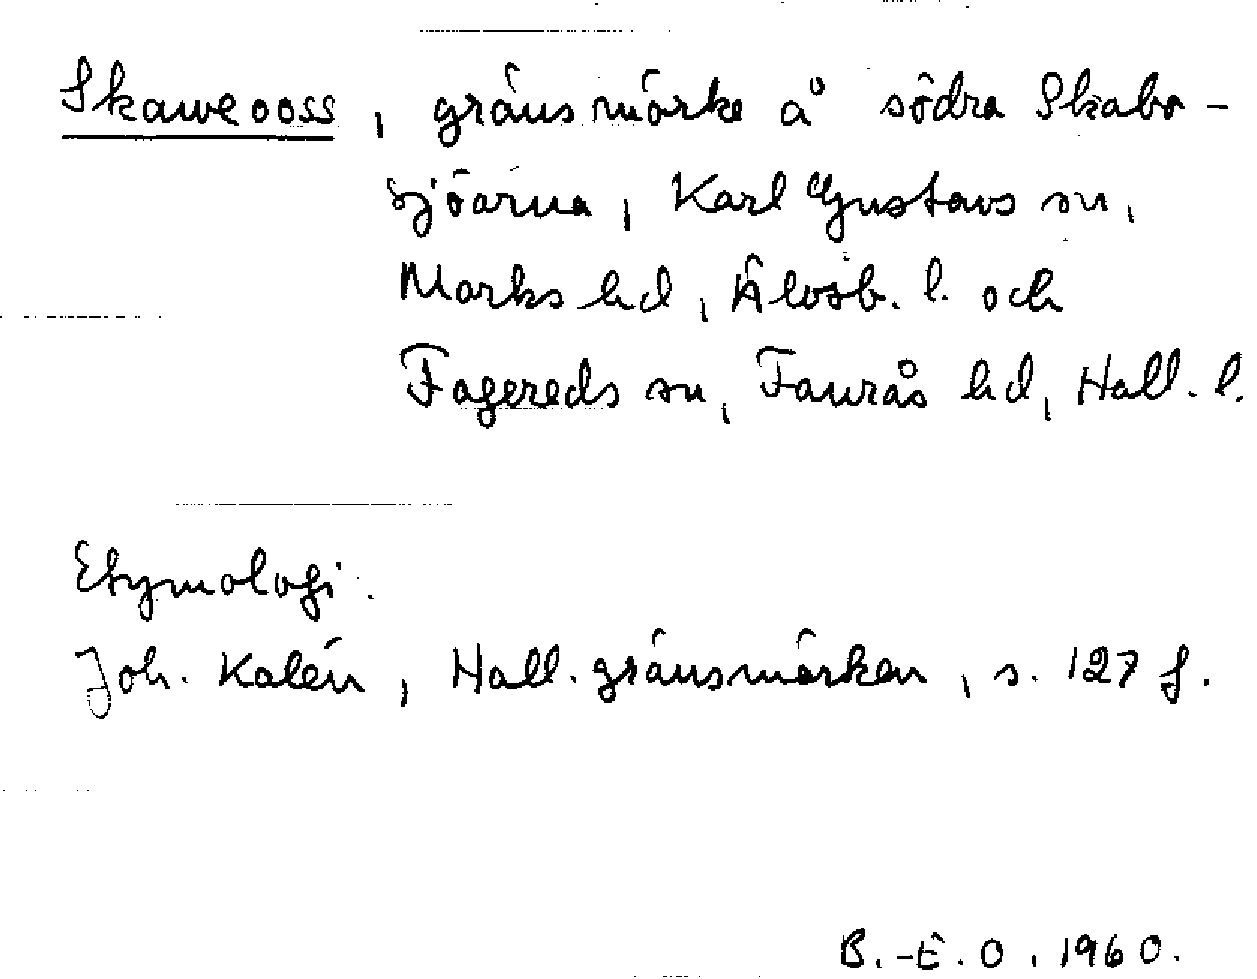 Skaweooss, gränsmärke å södra Skabo-
sjöarna, Karl Gustavs sn,
Marks hd, Älvsb. l. och
Fagereds sn, Faurås hd, Hall. l.
Etymologi.
Joh. Kalén, Hall. gränsmärken, s. 127 f.
B.-E. O. 1960.